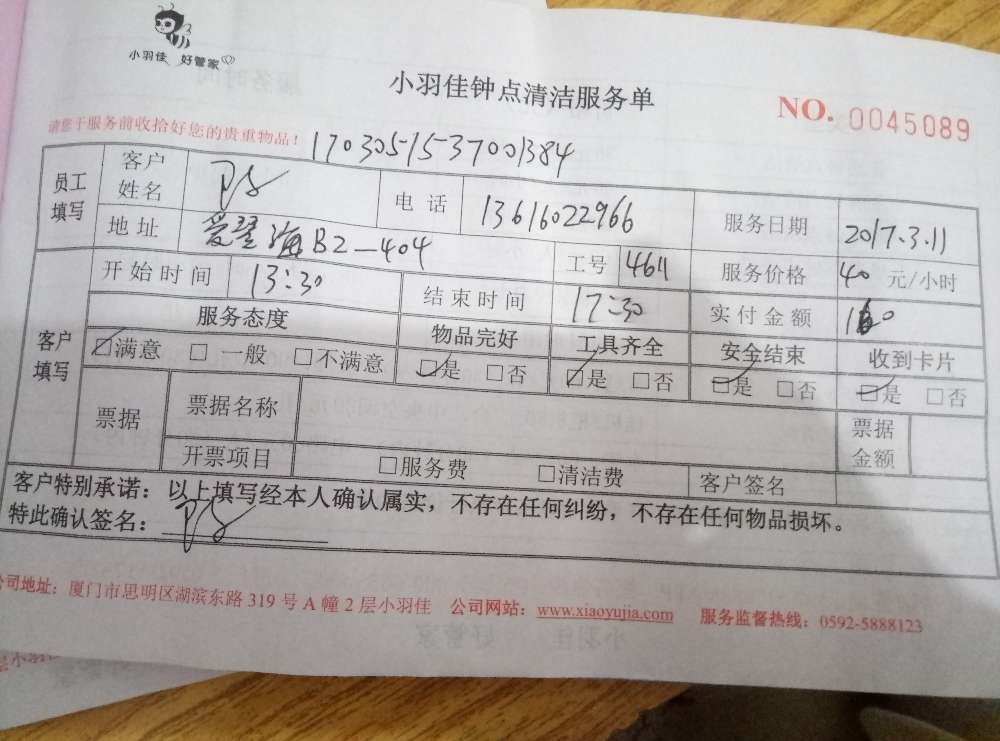 小羽佳 好管家
小羽佳钟点清洁服务单
NO. 0045089
请您于服务前收拾好您的贵重物品！
1703051537001384
员工填写
客户姓名
电 话 13616022966
服务日期 2017.3.11
地 址 爱琴海B2-404
工号 4611
服务价格 40 元/小时
客户填写
开始时间 13:30
结束时间 17:30
实付金额 160
服务态度 物品完好 工具齐全 安全结束 收到卡片
☑满意 □一般 □不满意 ☑是 □否 ☑是 □否 ☑是 □否 ☑是 □否
票据 票据名称 票据金额
开票项目 □服务费 □清洁费 客户签名
客户特别承诺：以上填写经本人确认属实，不存在任何纠纷，不存在任何物品损坏。
特此确认签名：
公司地址：厦门市思明区湖滨东路 319 号 A 幢 2 层小羽佳 公司网站：www.xiaoyujia.com 服务监督热线：0592-5888123